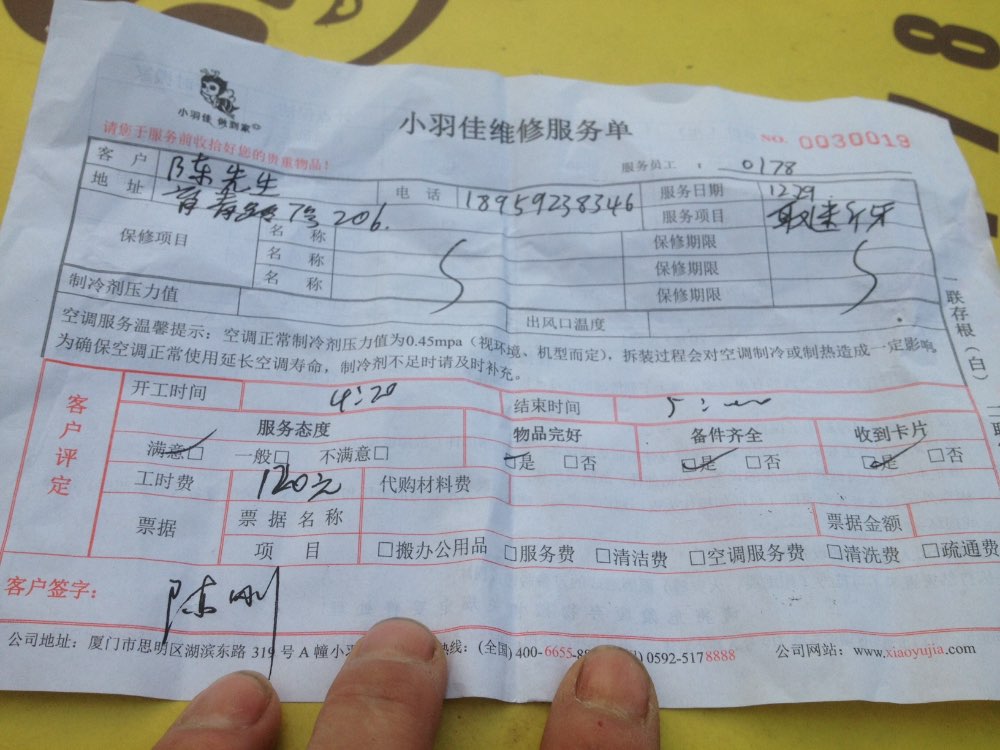 小羽佳 做到家
小羽佳维修服务单
NO. 0030019
请您于服务前收拾好您的贵重物品!
服务员工 : 0178
客户 陈先生 电话 18959238346 服务日期 12.29
地址 7号 206. 服务项目
保修项目 名称 保修期限
名称 保修期限
名称 保修期限
制冷剂压力值 出风口温度
空调服务温馨提示:空调正常制冷剂压力值为0.45mpa(视环境、机型而定),拆装过程会对空调制冷或制热造成一定影响
为确保空调正常使用延长空调寿命,制冷剂不足时请及时补充。
一联存根(白)
客户评定
开工时间 4:20 结束时间 5:
服务态度 物品完好 备件齐全 收到卡片
满意□ 一般□ 不满意□ □是 □否 □是 □否 □是 □否
工时费 120元 代购材料费
票据 票据名称 票据金额
项目 □搬办公用品 □服务费 □清洁费 □空调服务费 □清洗费 □疏通费
客户签字: 陈刚
公司地址:厦门市思明区湖滨东路319号A幢小 热线:(全国)400-6655-8 0592-5178888 公司网站:www.xiaoyujia.com
8